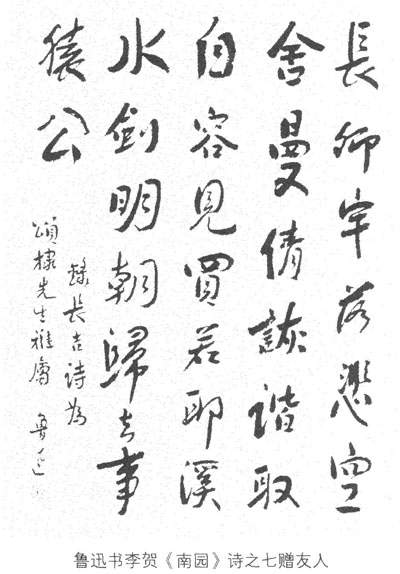 長卿牢落悲空
舍曼倩詼諧取
自容見買若耶溪
水劍明朝歸去事
猿公
錄長吉詩為
頌棣先生雅屬 魯迅
鲁迅书李贺《南园》诗之七赠友人